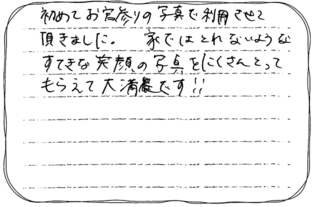 初めてお宮参りの写真で利用させて
頂きました。 家ではとれないような
すてきな笑顔の写真をたくさんとって
もらえて大満足です!!